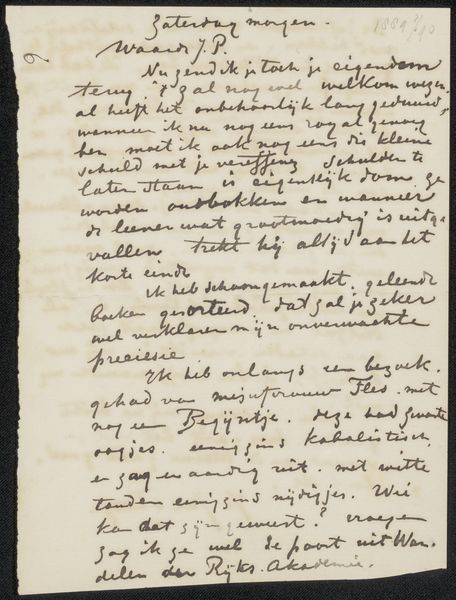 Zaterdag morgen.
1889
Waarde J.P.
Nu zend ik je toch je eigendom
terug. 't zal nog wel welkom wezen
al heeft het onbehoorlijk lang geduurd,
wanneer ik nu nog eens royal genoeg
ben moet ik ook nog eens die kleine
schuld met je vereffenen schulden te
laten staan is eigenlijk dom ze
worden oudbokken en wanneer
de leener wat grootmoedig is uitge
vallen trekt hij altijd aan het
korte einde
Ik heb schoongemaakt, geleende
boeken gesorteerd, dat zal je zeker
wel verklaren mijn onverwachte
preciesie
Ik heb onlangs een bezoek
gehad van mejufvrouw Fles. met
nog een Begijntje. deze had zwarte
oogjes. eenigzins kabalistisch
en zag er aardig uit. met witte
tanden eenigzins nijdigjes. Wie
kan dat zijn geweest? vroeger
zag ik ze wel de poort uit Wan
delen der Rijks. Akademie.